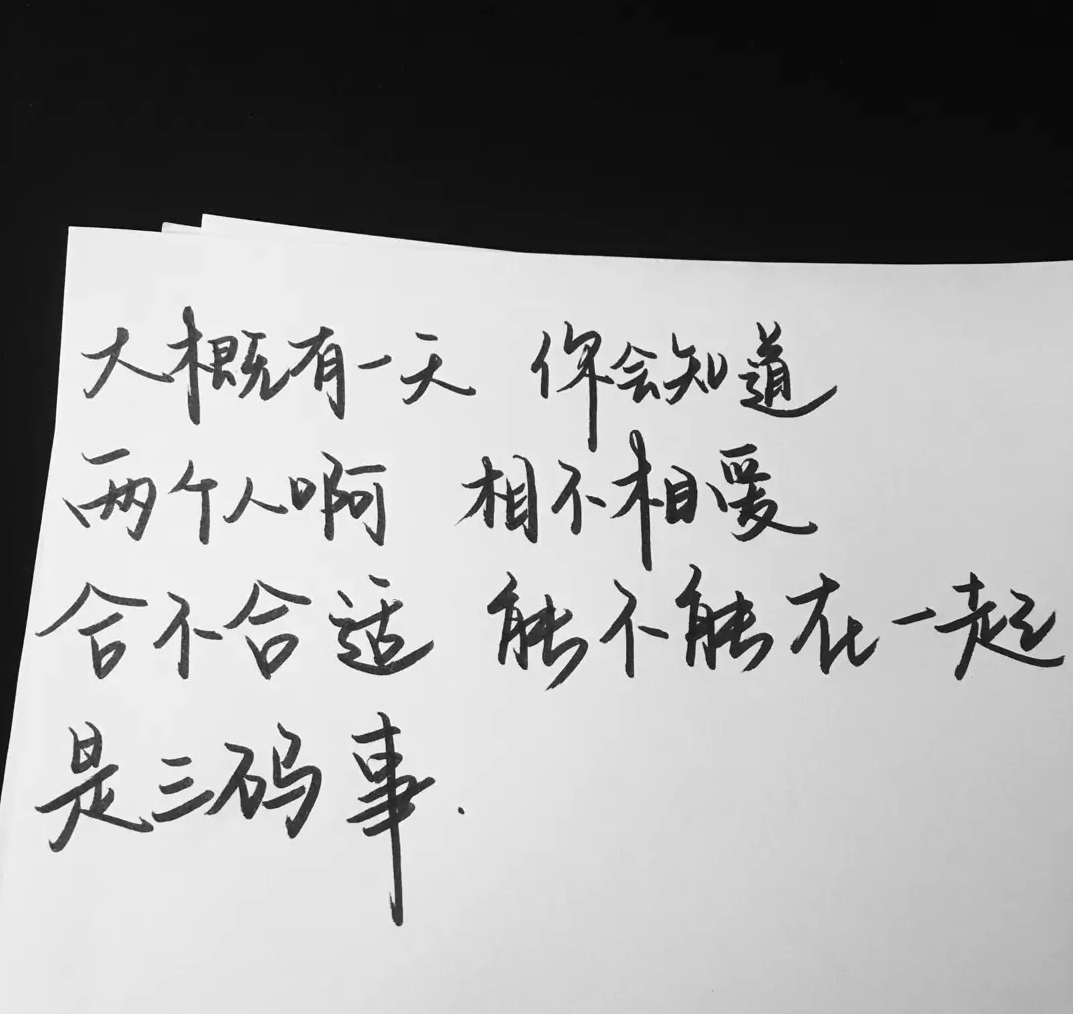 大概有一天 你会知道
两个人啊 相不相爱
合不合适 能不能在一起
是三码事.